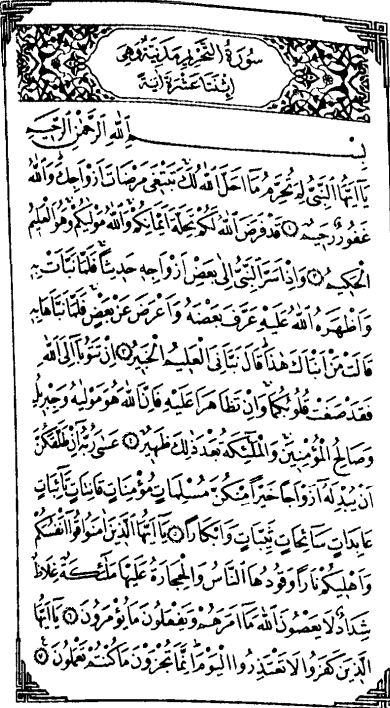 سورة التحريم مدنية وهي
اثنتا عشرة اية
بسم الله الرحمن الرحيم
يا ايها النبي لم تحرم ما احل الله لك تبتغي مرضات ازواجك والله
غفور رحيم ۱ قد فرض الله لكم تحلة ايمانكم والله موليكم وهو العليم
الحكيم ۲ واذ اسر النبي الى بعض ازواجه حديثا فلما نبات به
واظهره الله عليه عرف بعضه واعرض عن بعض فلما نباها به
قالت من انباك هذا قال نباني العليم الخبير ۳ ان تتوبا الى الله
فقد صغت قلوبكما وان تظاهرا عليه فان الله هو موليه وجبريل
وصالح المؤمنين والملئكة بعد ذلك ظهير ۴ عسى ربه ان طلقكن
ان يبدله ازواجا خيرا منكن مسلمات مؤمنات قانتات تائبات
عابدات سائحات ثيبات وابكارا ۵ يا ايها الذين امنوا قوا انفسكم
واهليكم نارا وقودها الناس والحجارة عليها ملئكة غلاظ
شداد لا يعصون الله ما امرهم ويفعلون ما يؤمرون ۶ يا ايها
الذين كفروا لا تعتذروا اليوم انما تجزون ما كنتم تعملون ۷